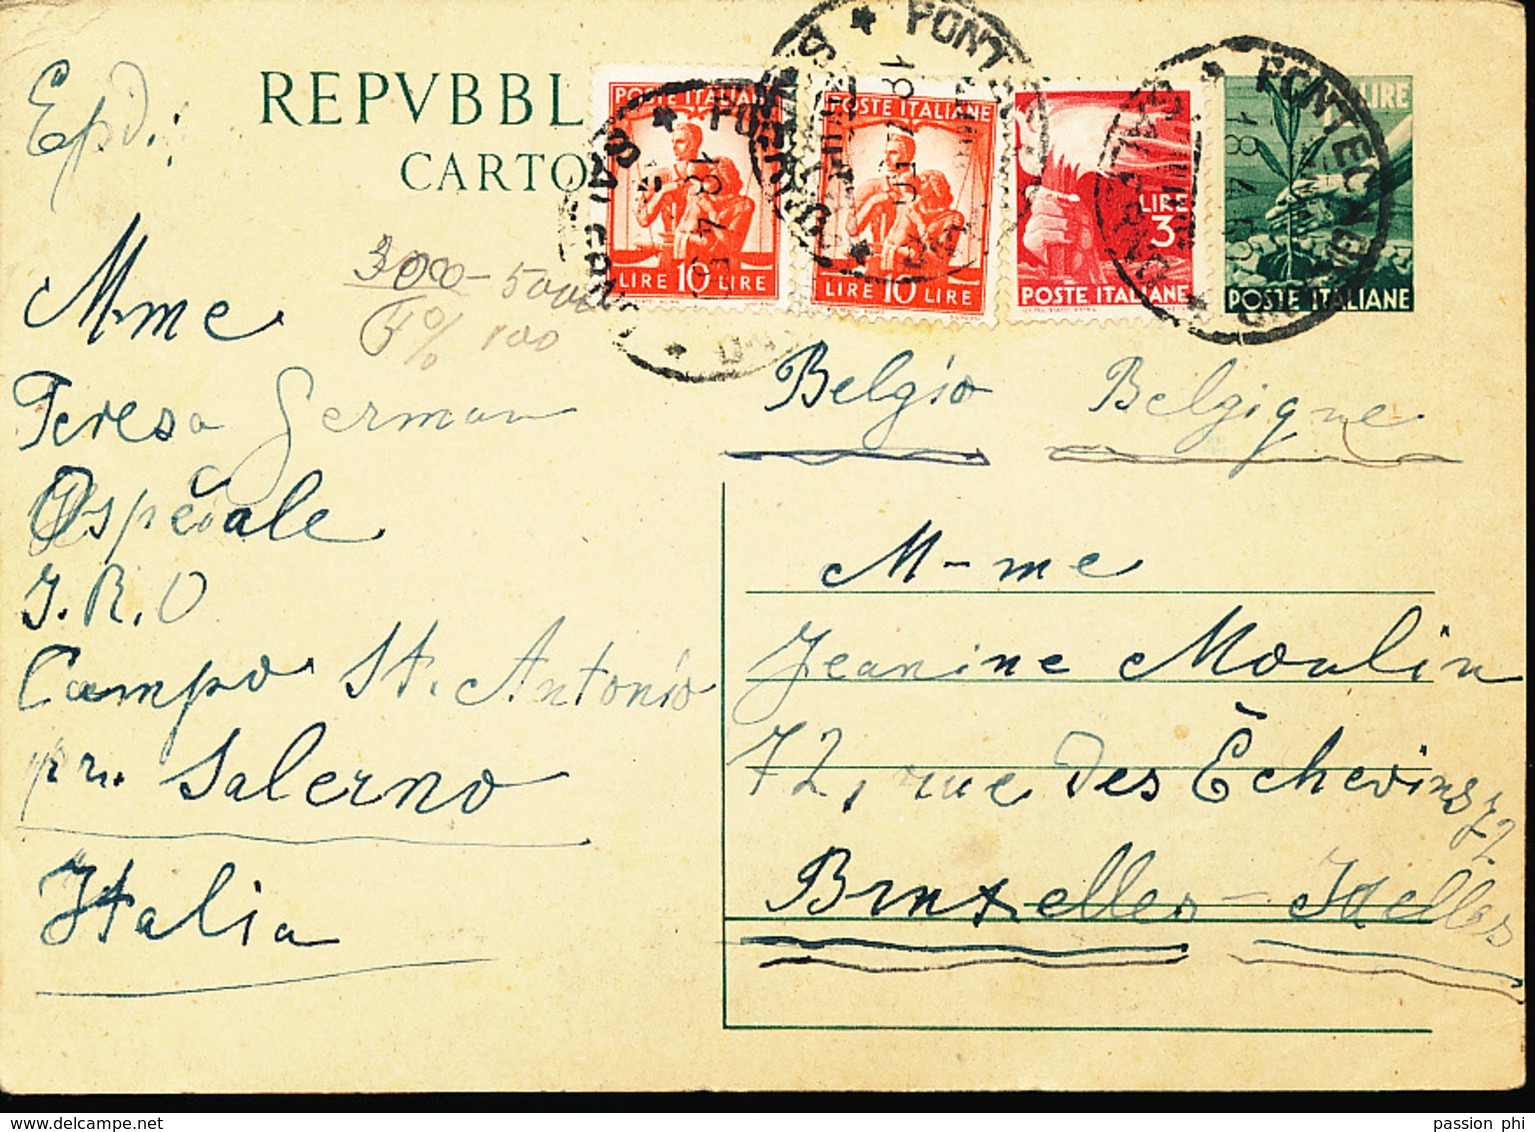 Epd.:
REPVBBL
CARTO
POSTE ITALIANE
LIRE 10 LIRE
POSTE ITALIANE
LIRE 10 LIRE
LIRE
3
POSTE ITALIANE
LIRE
POSTE ITALIANE
PONTECAGNANO
SALERNO
18.4.50
3000 - 5000
100
Mme
Teresa German
Ospedale
I.R.O
Campo St. Antonio
pr. Salerno
Italia
Belgio Belgique
M-me
Jeanine Moulin
72, rue des Échevins 72
Bruxelles - Ixelles
passion phi